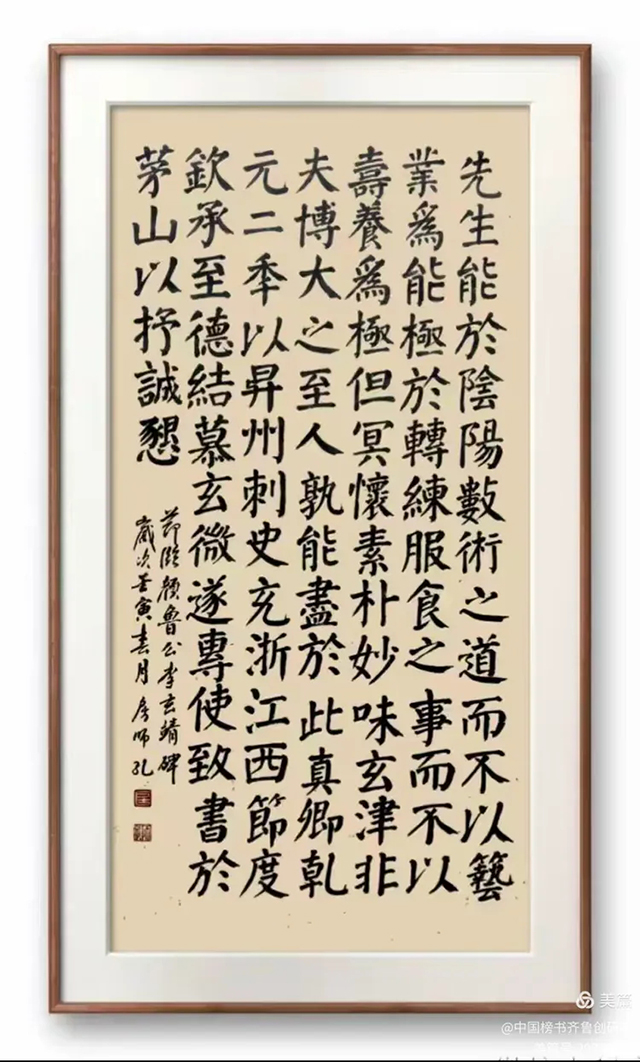 先生能於陰陽數術之道而不以藝
業爲能極於轉練服食之事而不以
壽養爲極但冥懷素朴妙味玄津非
夫博大之至人孰能盡於此真卿乹
元二季以昇州刺史充浙江西節度
欽承至德結慕玄微遂專使致書於
茅山以抒誠懇
節臨顏魯公李玄靖碑
歲次壬寅春月房师孔
美篇
@中国榜书齐鲁创